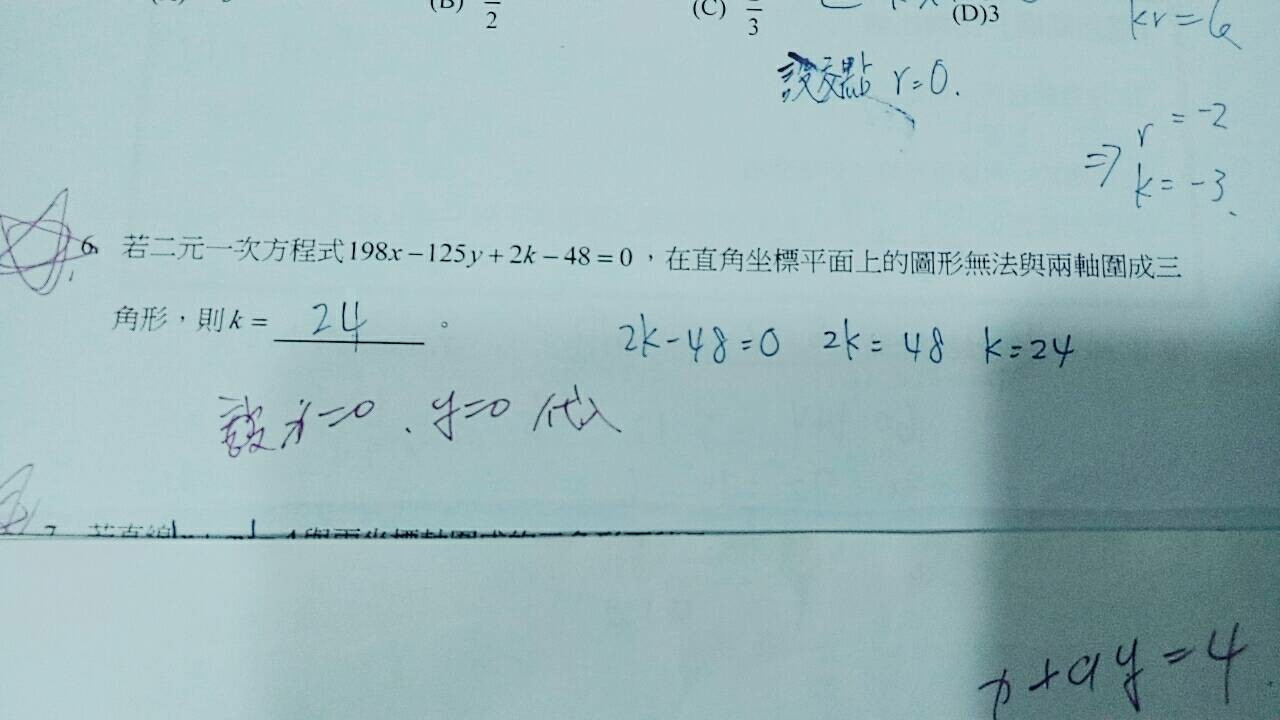 (B) 2
(C) 3
(D)3
kr=6
設交點 r=0.
r = -2
⇒ k = -3.
6. 若二元一次方程式198x－125y＋2k－48＝0，在直角坐標平面上的圖形無法與兩軸圍成三
角形，則k＝ 24 。
2k-48=0 2k=48 k=24
設x=0、y=0代入
7.
x+ay=4